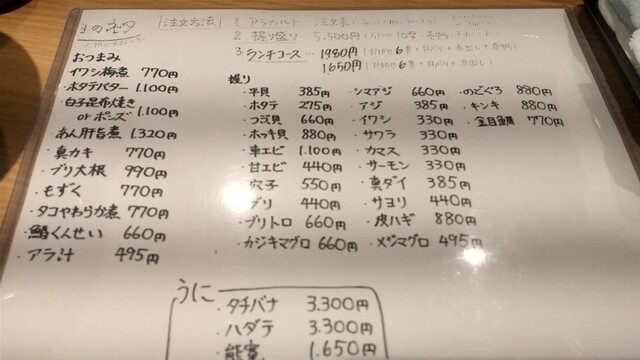 注文方法
1. アラカルト… 注文表
2. 握り盛り… 5,500円
3. ランチコース… 1980円
1650円
おつまみ
イワシ梅煮 770円
ホタテバター 1.100円
白子昆布焼き or ポンズ 1.100円
・あん肝旨煮 1.320円
・真カキ 770円
・ブリ大根 990円
・もずく 770円
・タコやわらか煮 770円
・鰆くんせい 660円
・アラ汁 495円
握り
・平貝 385円
・ホタテ 275円
・つぶ貝 660円
・ホッキ貝 880円
・車エビ 1.100円
・甘エビ 440円
・穴子 550円
・ブリ 440円
・ブリトロ 660円
・カジキマグロ 660円
・シマアジ 660円
・アジ 385円
・イワシ 330円
・サワラ 330円
・カマス 330円
・サーモン 330円
・真ダイ 385円
・サヨリ 440円
・皮ハギ 880円
・メジマグロ 495円
・のどぐろ 880円
・キンキ 880円
・金目鯛 770円
うに
・タチバナ 3.300円
・ハダテ 3.300円
・能 1.650円